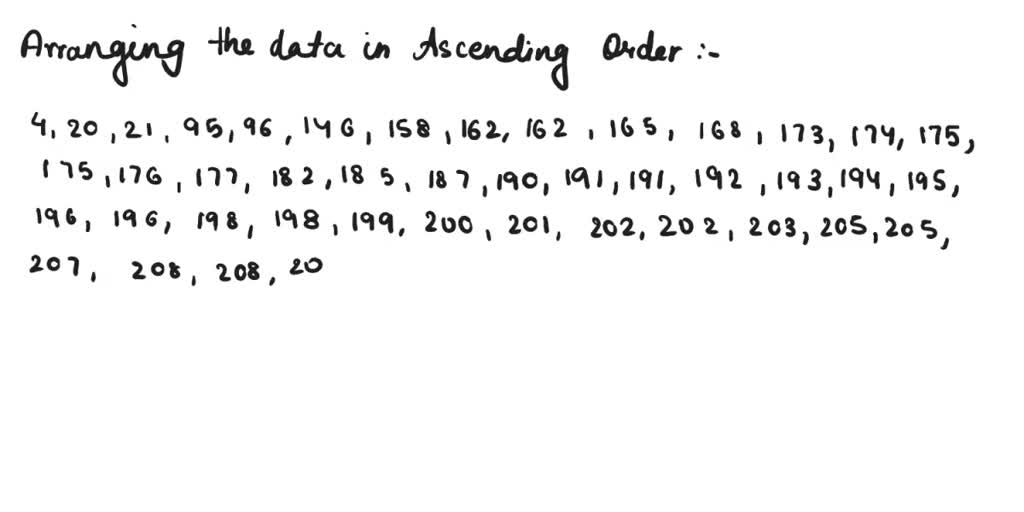 Arranging the data in Ascending Order :-
4, 20, 21, 95, 96, 146, 158, 162, 162, 165, 168, 173, 174, 175,
175, 176, 177, 182, 185, 187, 190, 191, 191, 192, 193, 194, 195,
196, 196, 198, 198, 199, 200, 201, 202, 202, 203, 205, 205,
207, 208, 208, 20